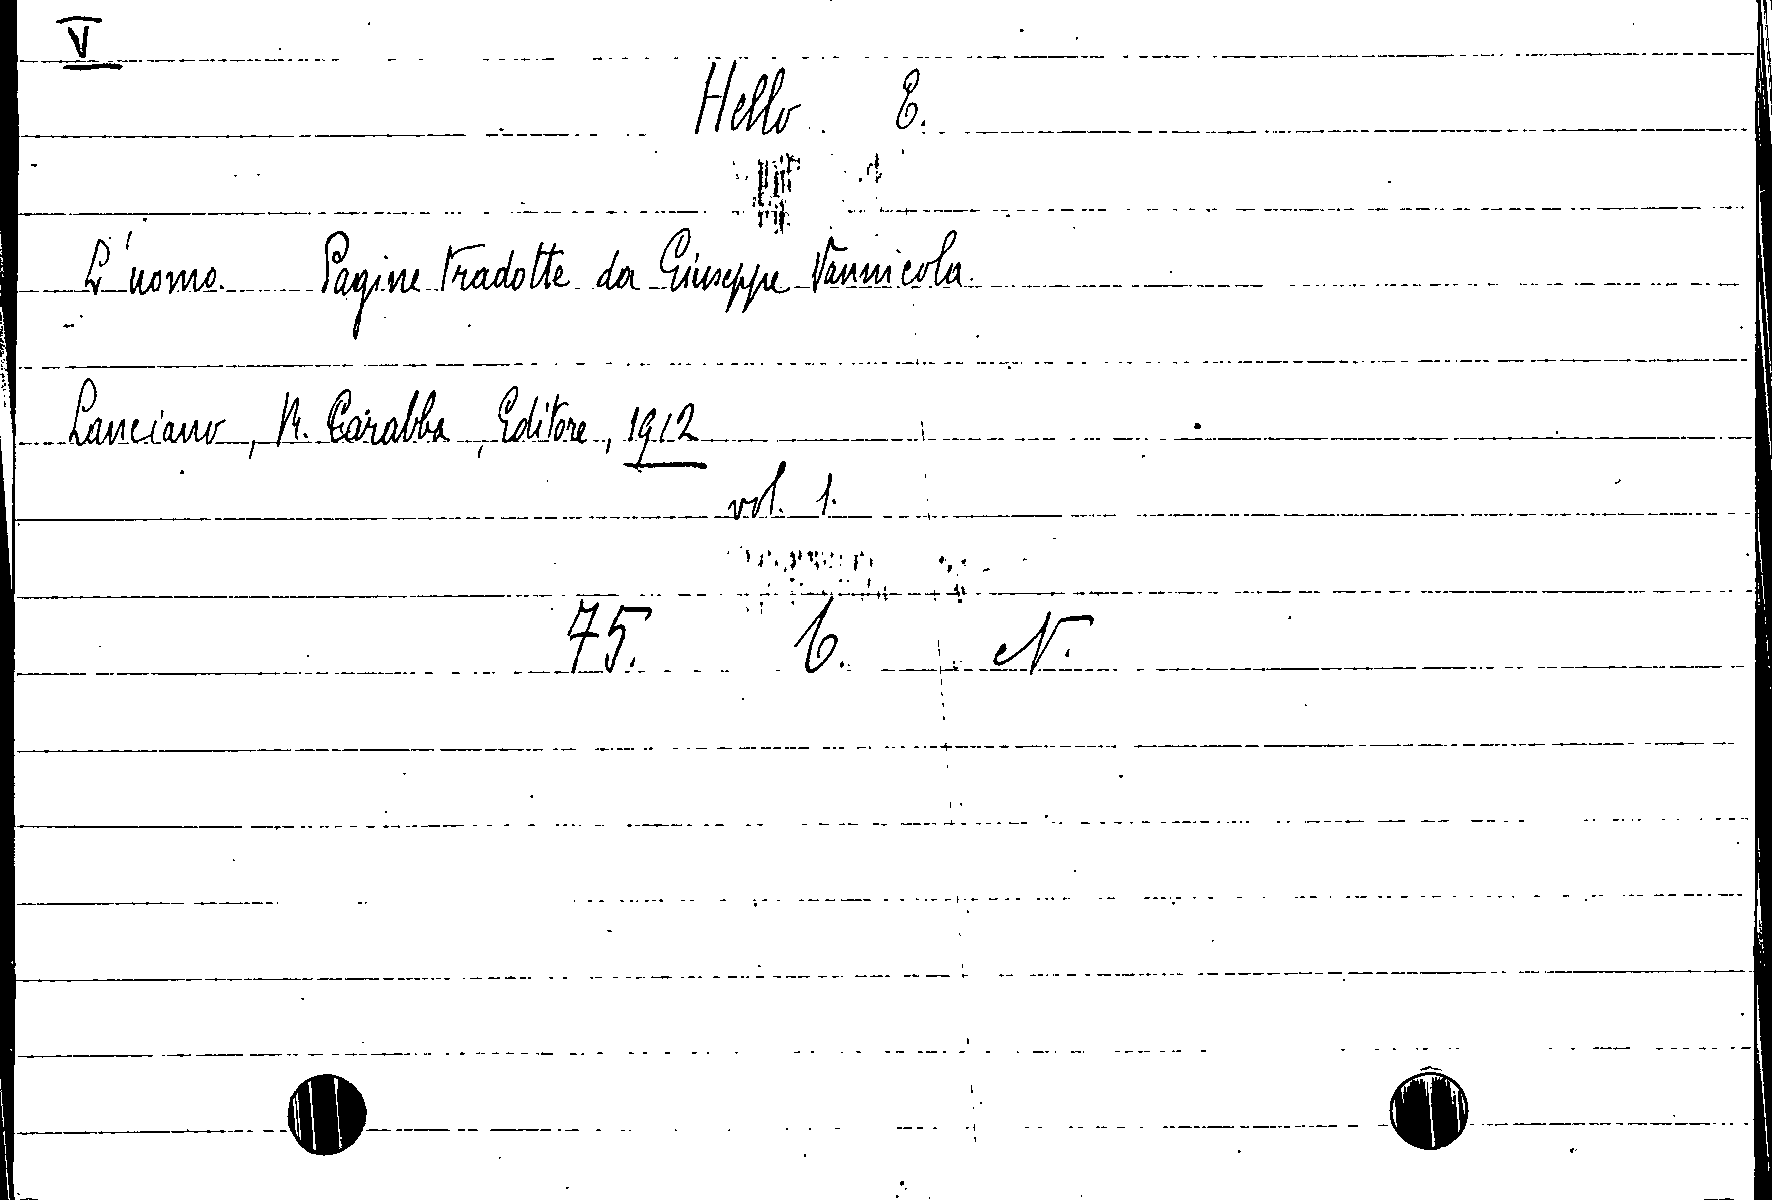 V
Hello E.
L'uomo. Pagine tradotte da Giuseppe Vannicola.
Lanciano, R. Carabba, Editore, 1912
vol. 1.
75. C. N.